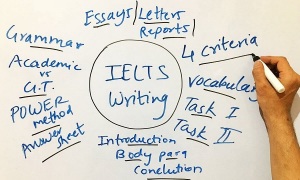 Essays/Letters
Reports/
Grammar
4 criteria
Academic
vs
G.T.
IELTS
Writing
Vocabulary
Task I
Task II
POWER
method
Answer sheet
Introduction
Body para
Conclution